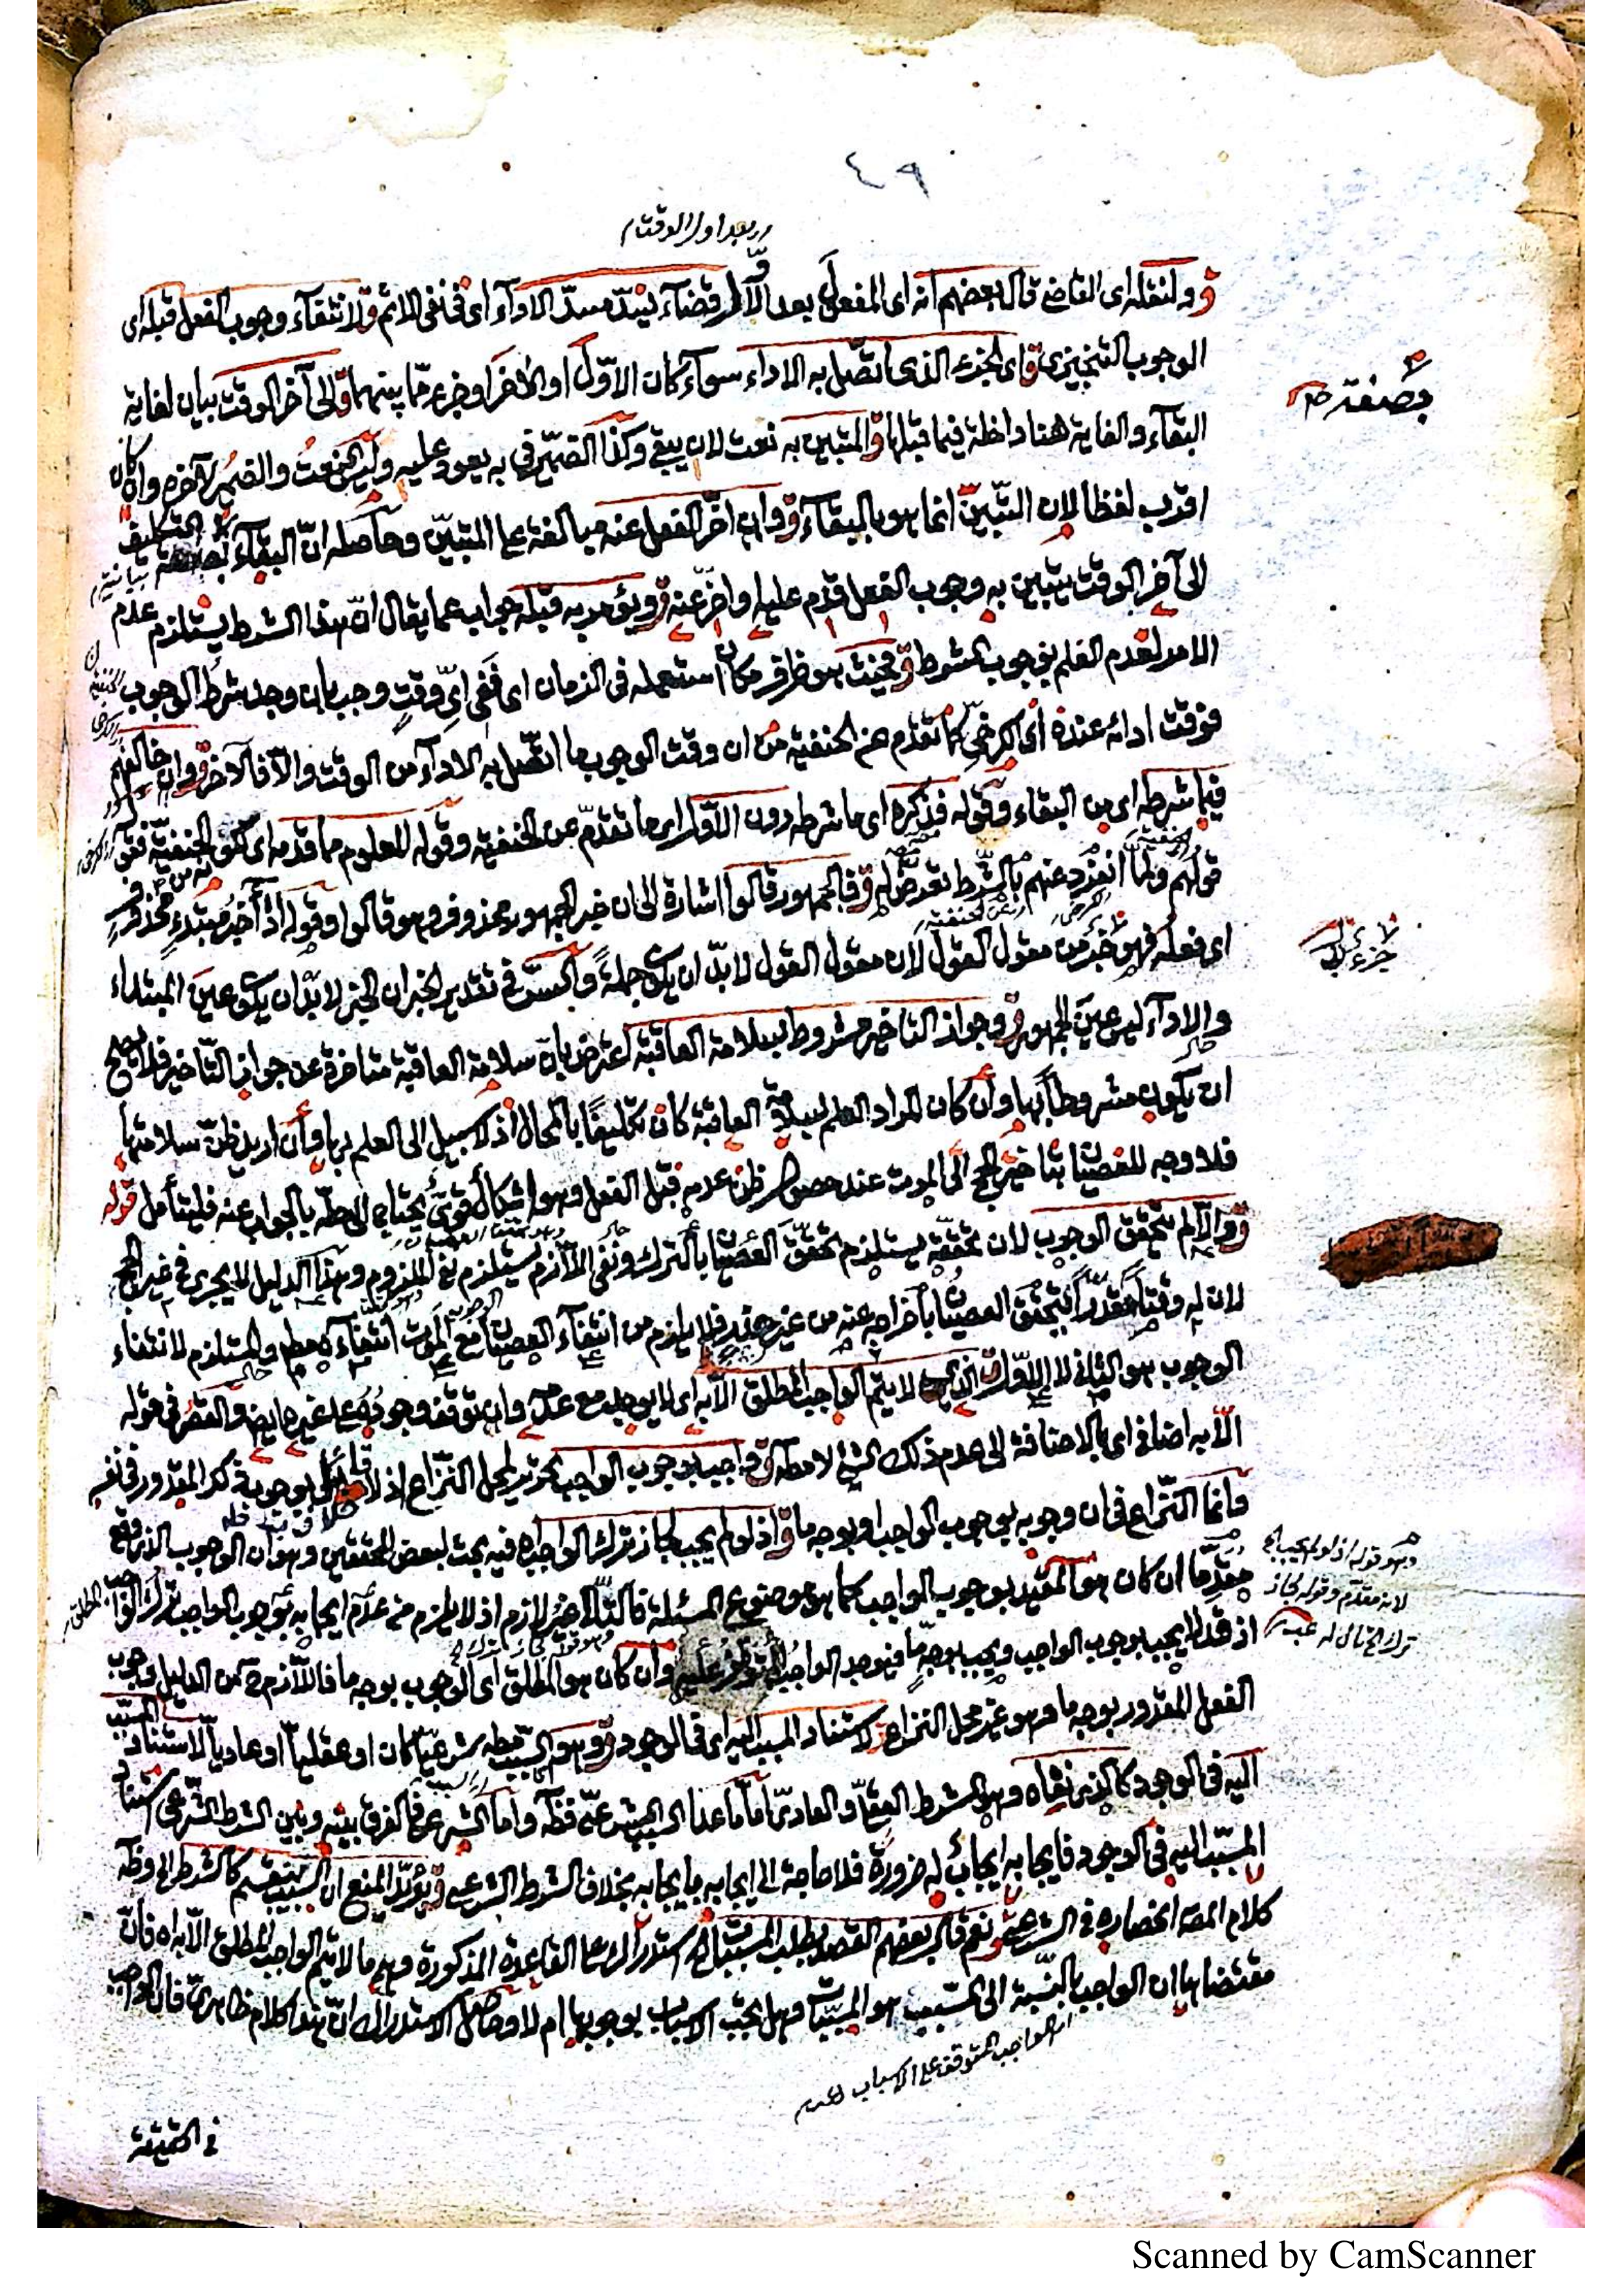 ٤٩
بعد اول الوقت
ق ولنقله اى القاضى قال بعضهم انه اى المفعول بعد الاول قضاء يسدّ مسدّ الاداء اى فى نفى الاثم ق لانتفاء وجوب الفعل قبله اى
الوجوب التنجيزى ق اى الجزء الذى اتصل به الاداء سواء كان الاوّل او الآخر او جزء ممّا بينهما ق الى آخر الوقت بيان لغاية
البقاء والغاية هنا داخلة فيما قبلها ق المتبين به نعت لان يبقى وكذا الضمير فى به يعود عليه وليس النعت والضمير لآخره وان كان
اقرب لفظا لان التبيّن انما هو بالبقاء ق وان اخّر الفعل عنه مبالغة على المتبيّن وحاصله انّ البقاء بصفة التكليف
الى آخر الوقت يتبين به وجوب الفعل قدّم عليه او اخّر عنه ق ويؤمر به قبله جواب عما يقال انّ هذا الشرط يستلزم عدم
الامر لعدم العلم بوجوب المشروط ق فحيث هو ظرف مكان استعمله فى الزمان اى ففى اىّ وقتٍ وجب بان وجد شرط الوجوب
فوقت ادائه عنده اى الكرخى كما تقدم عن الحنفية من ان وقت الوجوب ما اتصل به الاداء من الوقت والّا فالآخر ق وان خالفهم
فيما شرطه اى من البقاء وقوله فذكره اى ما شرطه دون الاوّل اى ما تقدّم عن الحنفية وقوله المعلوم مما قدمه اى
قولهم ولمّا انفرد عنهم بالشرط تعرض له ق فالجمهور قالوا اشارة الى ان خبر الجمهور محذوف وهو قالوا وقوله اداء خبر مبتدء محذوف
اى فعله فهو جزء من مقول القول لان مقول القول لا بدّ ان يكون جملة والسرّ فى تقدير الخبر ان الخبر لا بدّ ان يكون عينَ المبتداء
والاداء ليس عينَ الجمهور ق وجواز التاخير مشروط بسلامة العاقبة اعترض بانّ سلامة العاقبة متاخرة عن جواز التأخير فلا يصح
ان يكون مشروطا بها وان كان المراد العلم بسلامة العاقبة كان تكليفًا بالمحال اذ لا سبيل الى العلم بها وان اريد ظنّ سلامتها
فلا وجه للعصيان بتاخير الحج الى الموت عند حصول ظن عدمه قبل الفعل وهو اشكال قوىّ يحتاج الى حلّه بالجواب عنه فليتأمل قوله
ق والّا لم يتحقق الوجوب لان تحققه يستلزم تحقق العصيان بالترك ونفى اللازم يستلزم نفى الملزوم وهذا الدليل لا يجرى فى غير الحج
لان له وقتا مقدّرا فيتحقق العصيان باخراجه عنه من غير عذر فلا يلزم من انتفاء العصيان مع الموت انتفاءه مطلقا والمستلزم لانتفاء
الوجوب هو الثانى لا الاوّل ق الذى لا يتم الواجب المطلق الّا به اى لا يوجد مع عدمه وان توقف وجوده على غيره ايضا والقصر فى قوله
الّا به اضافى اى بالاضافة الى عدم ذلك الشئ لا مطلقا ق واجب بوجوب الواجب تحرير لمحل النزاع اذ لا قائل بوجوبه المقدور فى نفسه
وانما النزاع فى ان وجوبه بوجوب الواجب او بوجه ما ق اذ لو لم يجب لجاز ترك الواجب اه فيه بحث لبعض المحققين وهو ان الوجوب الذى وقع
مقدّما ان كان هو المقيد بوجوب الواجب كما هو موضوع المسئلة فالتالى غير لازم اذ لا يلزم من عدم ايجابه بوجوب الواجب ترك الواجب
اذ قد لا يجب بوجوب الواجب ويجب بوجه ما فيوجد الواجب المتوقف عليه وان كان هو المطلق اى الوجوب بوجه ما فاللازم ح من الدليل وجوب
الفعل المقدور بوجه ما وهو غير محل النزاع ق لاستناد المسبب اليه اى فى الوجود ق وهو السبب مطلقا شرعيّا كان او عقليا او عاديا لاستناد المسبب
اليه فى الوجود كالذى نفاه وهو الشرط العقلى والعادىّ امّا ما عدا السبب الشرعىّ فظاهر وامّا الشرعى فالفرق بينه وبين الشرط الشرعى استناد
المسبّب اليه فى الوجود فايجابه ايجاب له ضرورة فلا حاجة الى ايجابه بايجابه بخلاف الشرط الشرعى ق ويؤيّد المنع ان السبب ينقسم كالشرط الى وظاهر
كلام المصنف انحصاره فى الشرعى ق نعم قال بعضهم القصد بطلب المسببات الخ استدراك على القاعدة المذكورة وهى ما لا يتم الواجب المطلق الّا به اه فانّ
مقتضاها ان الواجب بالنسبة الى السبب هو المسببات وهل يجب الاسباب بوجوبها ام لا وحاصل الاستدراك انّ هذا كلام ظاهرىّ فان الواجب
اى الواجب المتوقف على الاسباب
فى الحقيقة
بصفة صح
وهو قوله اذ لو لم يجب الخ
لانه مقدّم وقوله لجاز
ترك الخ تال له